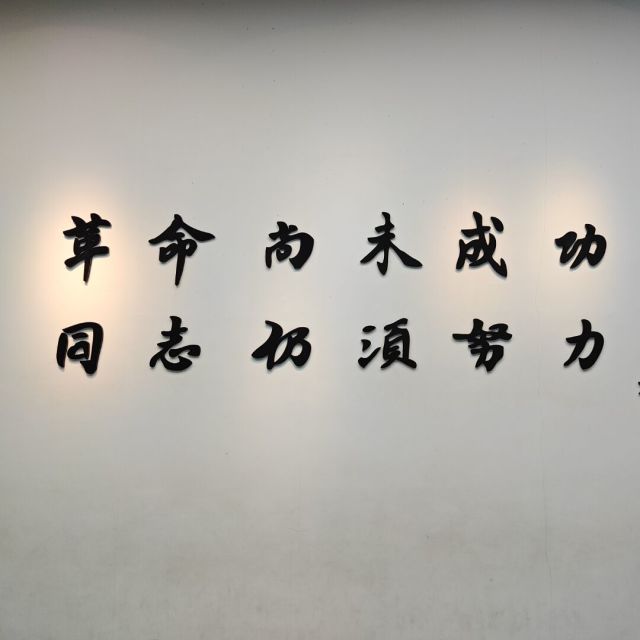 革命尚未成功
同志仍須努力